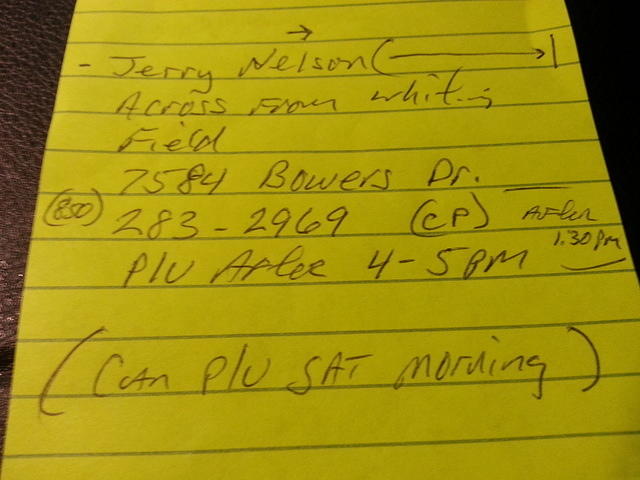 - Jerry Nelson (
Across From whiting
Field
7584 Bowers Dr.
(850) 283-2969 (CP) After
1:30 pm
P/U After 4-5 pm
(Can P/U SAT morning)